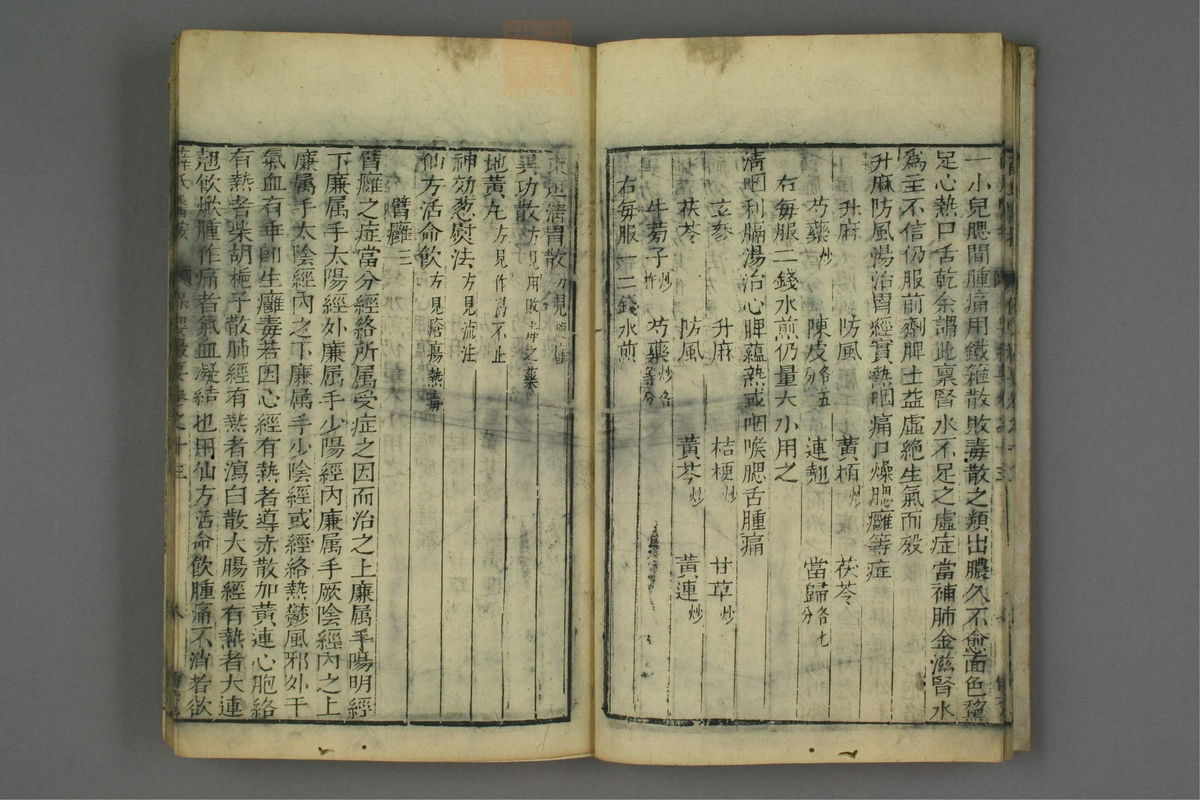 一小兒腮間腫痛用鐵箍散敗毒散之類出膿久不愈面色黧
足心熱口舌乾余謂此禀腎水不足之虛症當補肺金滋腎水
爲主不信仍服前劑脾土益虛絶生氣而殁
升麻防風湯治胃經實熱咽痛口燥腮癰等症
升麻 防風 黃栢炒 茯苓
芍藥炒 陳皮各五分 連翹 當歸各七分
右每服二錢水煎仍量大小用之
清咽利膈湯治心脾蘊熱或咽喉腮舌腫痛
玄參 升麻 桔梗炒 甘草炒
茯苓 防風 黃芩炒 黃連炒
牛蒡子炒杵 芍藥炒各等分
右每服一二錢水煎
清胃散方見
異功散方見用敗毒之藥
地黃丸方見作渴不止
神効葱熨法方見流注
仙方活命飲方見瘡瘍熱毒
臂癰三
臂癰之症當分經絡所属受症之因而治之上廉属手陽明經
下廉属手太陽經外廉属手少陽經內廉属手厥陰經內之上
廉属手太陰經內之下廉属手少陰經或經絡熱鬱風邪外干
氣血有乖卽生癰毒若因心經有熱者導赤散加黃連心胞絡
有熱者柴胡梔子散肺經有熱者瀉白散大腸經有熱者大連
翹飲焮腫作痛者氣血凝結也用仙方活命飲腫痛不消者欲
薛氏醫按 保嬰撮要卷之十三 八